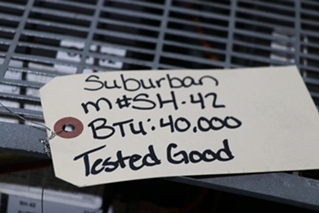 Suburban
m#SH-42
BTU: 40,000
Tested Good